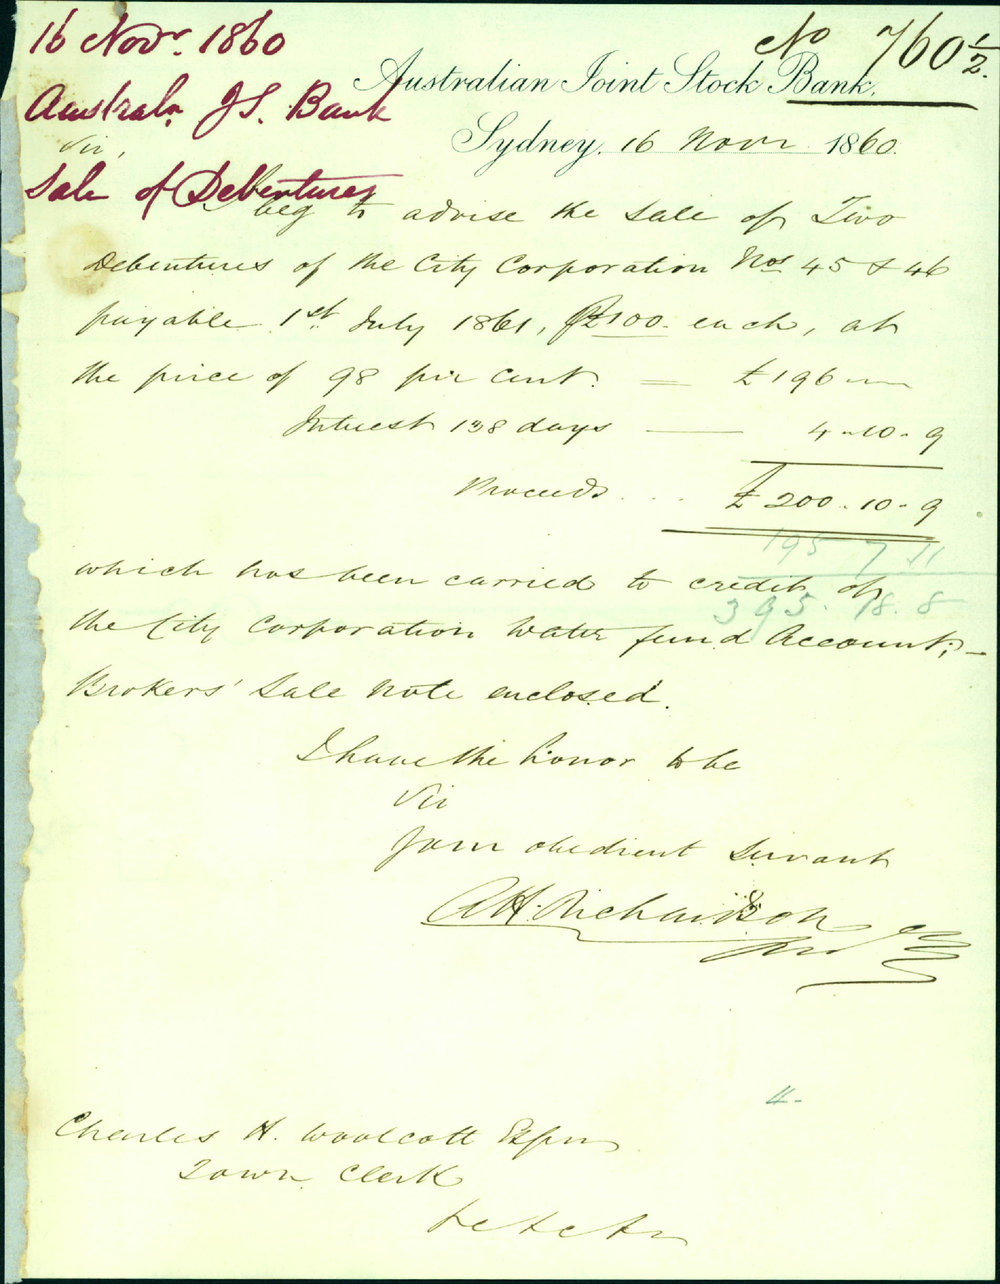 16 Novr. 1860
No 760 1/2.
Australian Joint Stock Bank,
Australn. J S. Bank
Sydney, 16 Novr 1860.
Sir,
Sale of Debentures
I beg to advise the sale of Two
Debentures of the City Corporation Nos 45 & 46
payable 1st. July 1861, £100. each, at
the price of 98 per cent. = £196 " "
Interest 138 days — 4 - 10 - 9
Proceeds . . . £ 200 - 10 - 9
195 7 11
which has been carried to credit of
395. 18. 8
the City Corporation Water fund Account; -
Brokers' Sale Note enclosed.
I have the honor to be
Sir
Your obedient Servant
A H. Richardson
Charles H. Woolcott Esqre
Town Clerk
&c &c &c